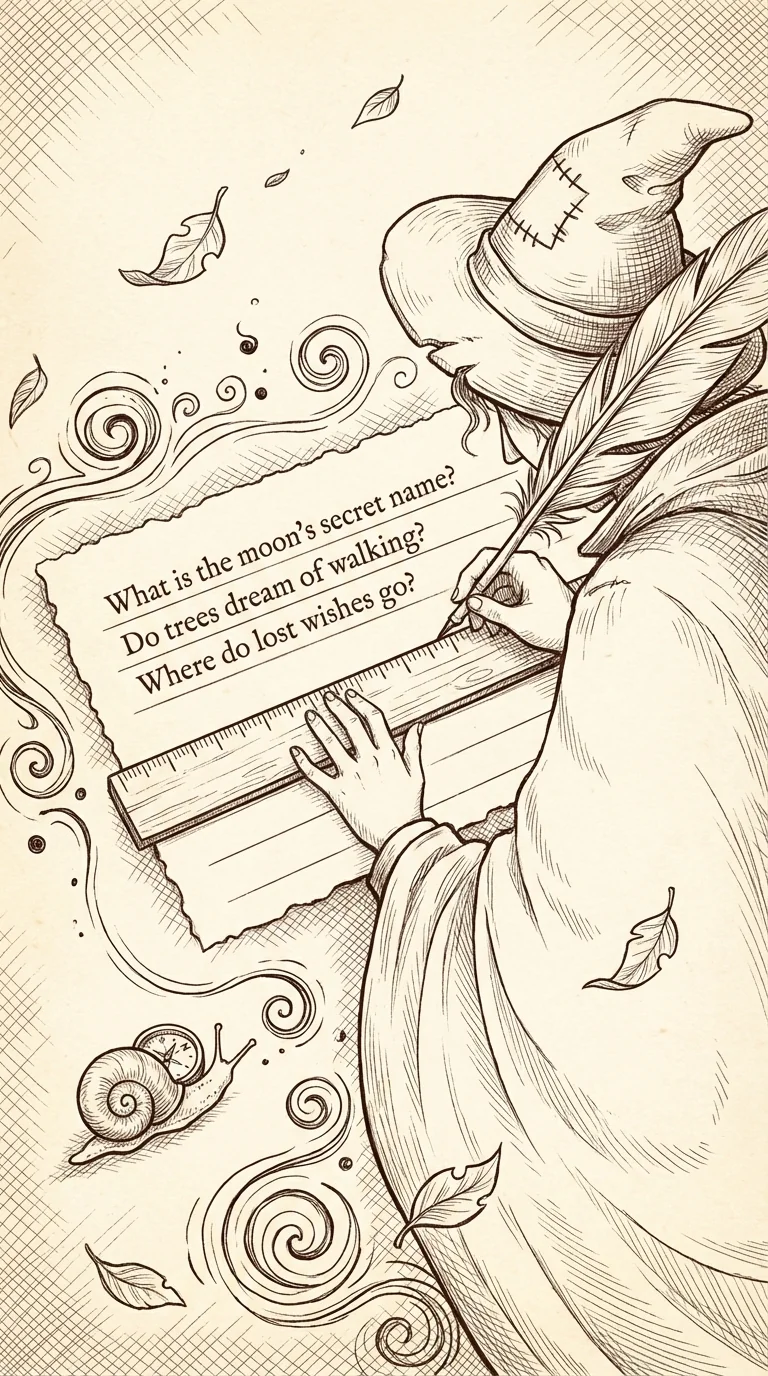 What is the moon's secret name?
Do trees dream of walking?
Where do lost wishes go?
N